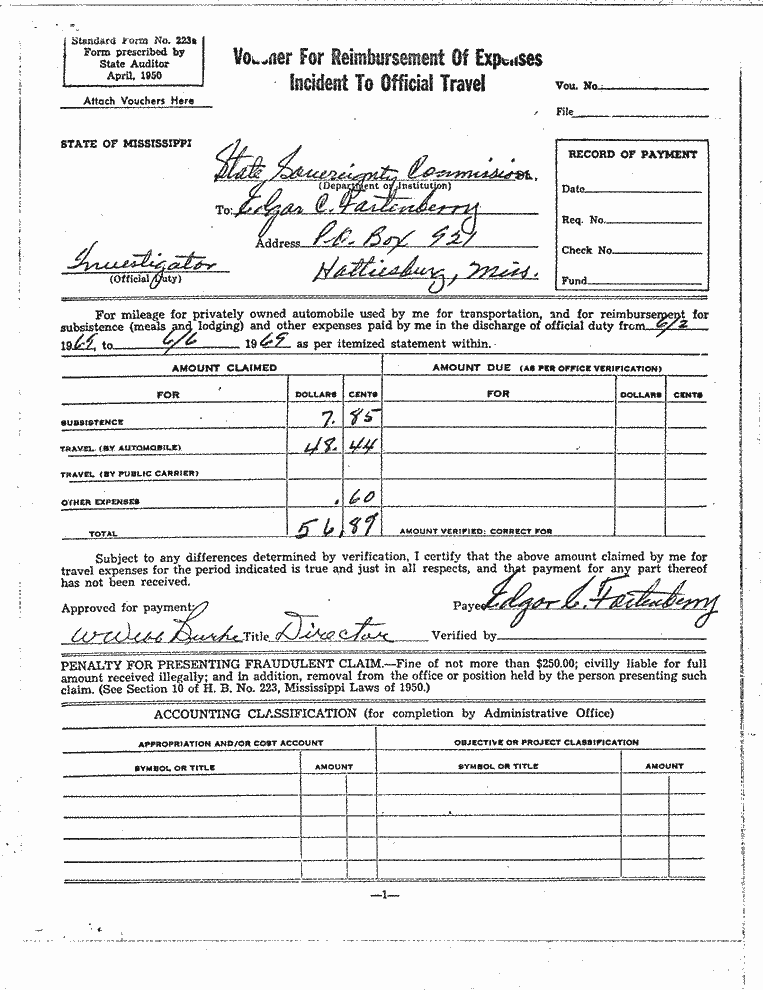 Standard Form No. 223a
Form prescribed by
State Auditor
April, 1950
Attach Vouchers Here
Voucher For Reimbursement Of Expenses
Incident To Official Travel
Vou. No.
File
STATE OF MISSISSIPPI
State Sovereignty Commission,
(Department or Institution)
To: Edgar C. Fortenberry
Address P.O. Box 921
Hattiesburg, Miss.
Investigator
(Official Duty)
RECORD OF PAYMENT
Date
Req. No.
Check No.
Fund
For mileage for privately owned automobile used by me for transportation, and for reimbursement for
subsistence (meals and lodging) and other expenses paid by me in the discharge of official duty from 6/2
1969, to 6/6 1969 as per itemized statement within.
AMOUNT CLAIMED AMOUNT DUE (AS PER OFFICE VERIFICATION)
FOR DOLLARS CENTS FOR DOLLARS CENTS
SUBSISTENCE 7. 85
TRAVEL (BY AUTOMOBILE) 48. 44
TRAVEL (BY PUBLIC CARRIER)
OTHER EXPENSES . 60
TOTAL 56.89 AMOUNT VERIFIED: CORRECT FOR
Subject to any differences determined by verification, I certify that the above amount claimed by me for
travel expenses for the period indicated is true and just in all respects, and that payment for any part thereof
has not been received.
Approved for payment: Payee Edgar C. Fortenberry
W Webb Burke Title Director Verified by
PENALTY FOR PRESENTING FRAUDULENT CLAIM.—Fine of not more than $250.00; civilly liable for full
amount received illegally; and in addition, removal from the office or position held by the person presenting such
claim. (See Section 10 of H. B. No. 223, Mississippi Laws of 1950.)
ACCOUNTING CLASSIFICATION (for completion by Administrative Office)
APPROPRIATION AND/OR COST ACCOUNT OBJECTIVE OR PROJECT CLASSIFICATION
SYMBOL OR TITLE AMOUNT SYMBOL OR TITLE AMOUNT
—1—